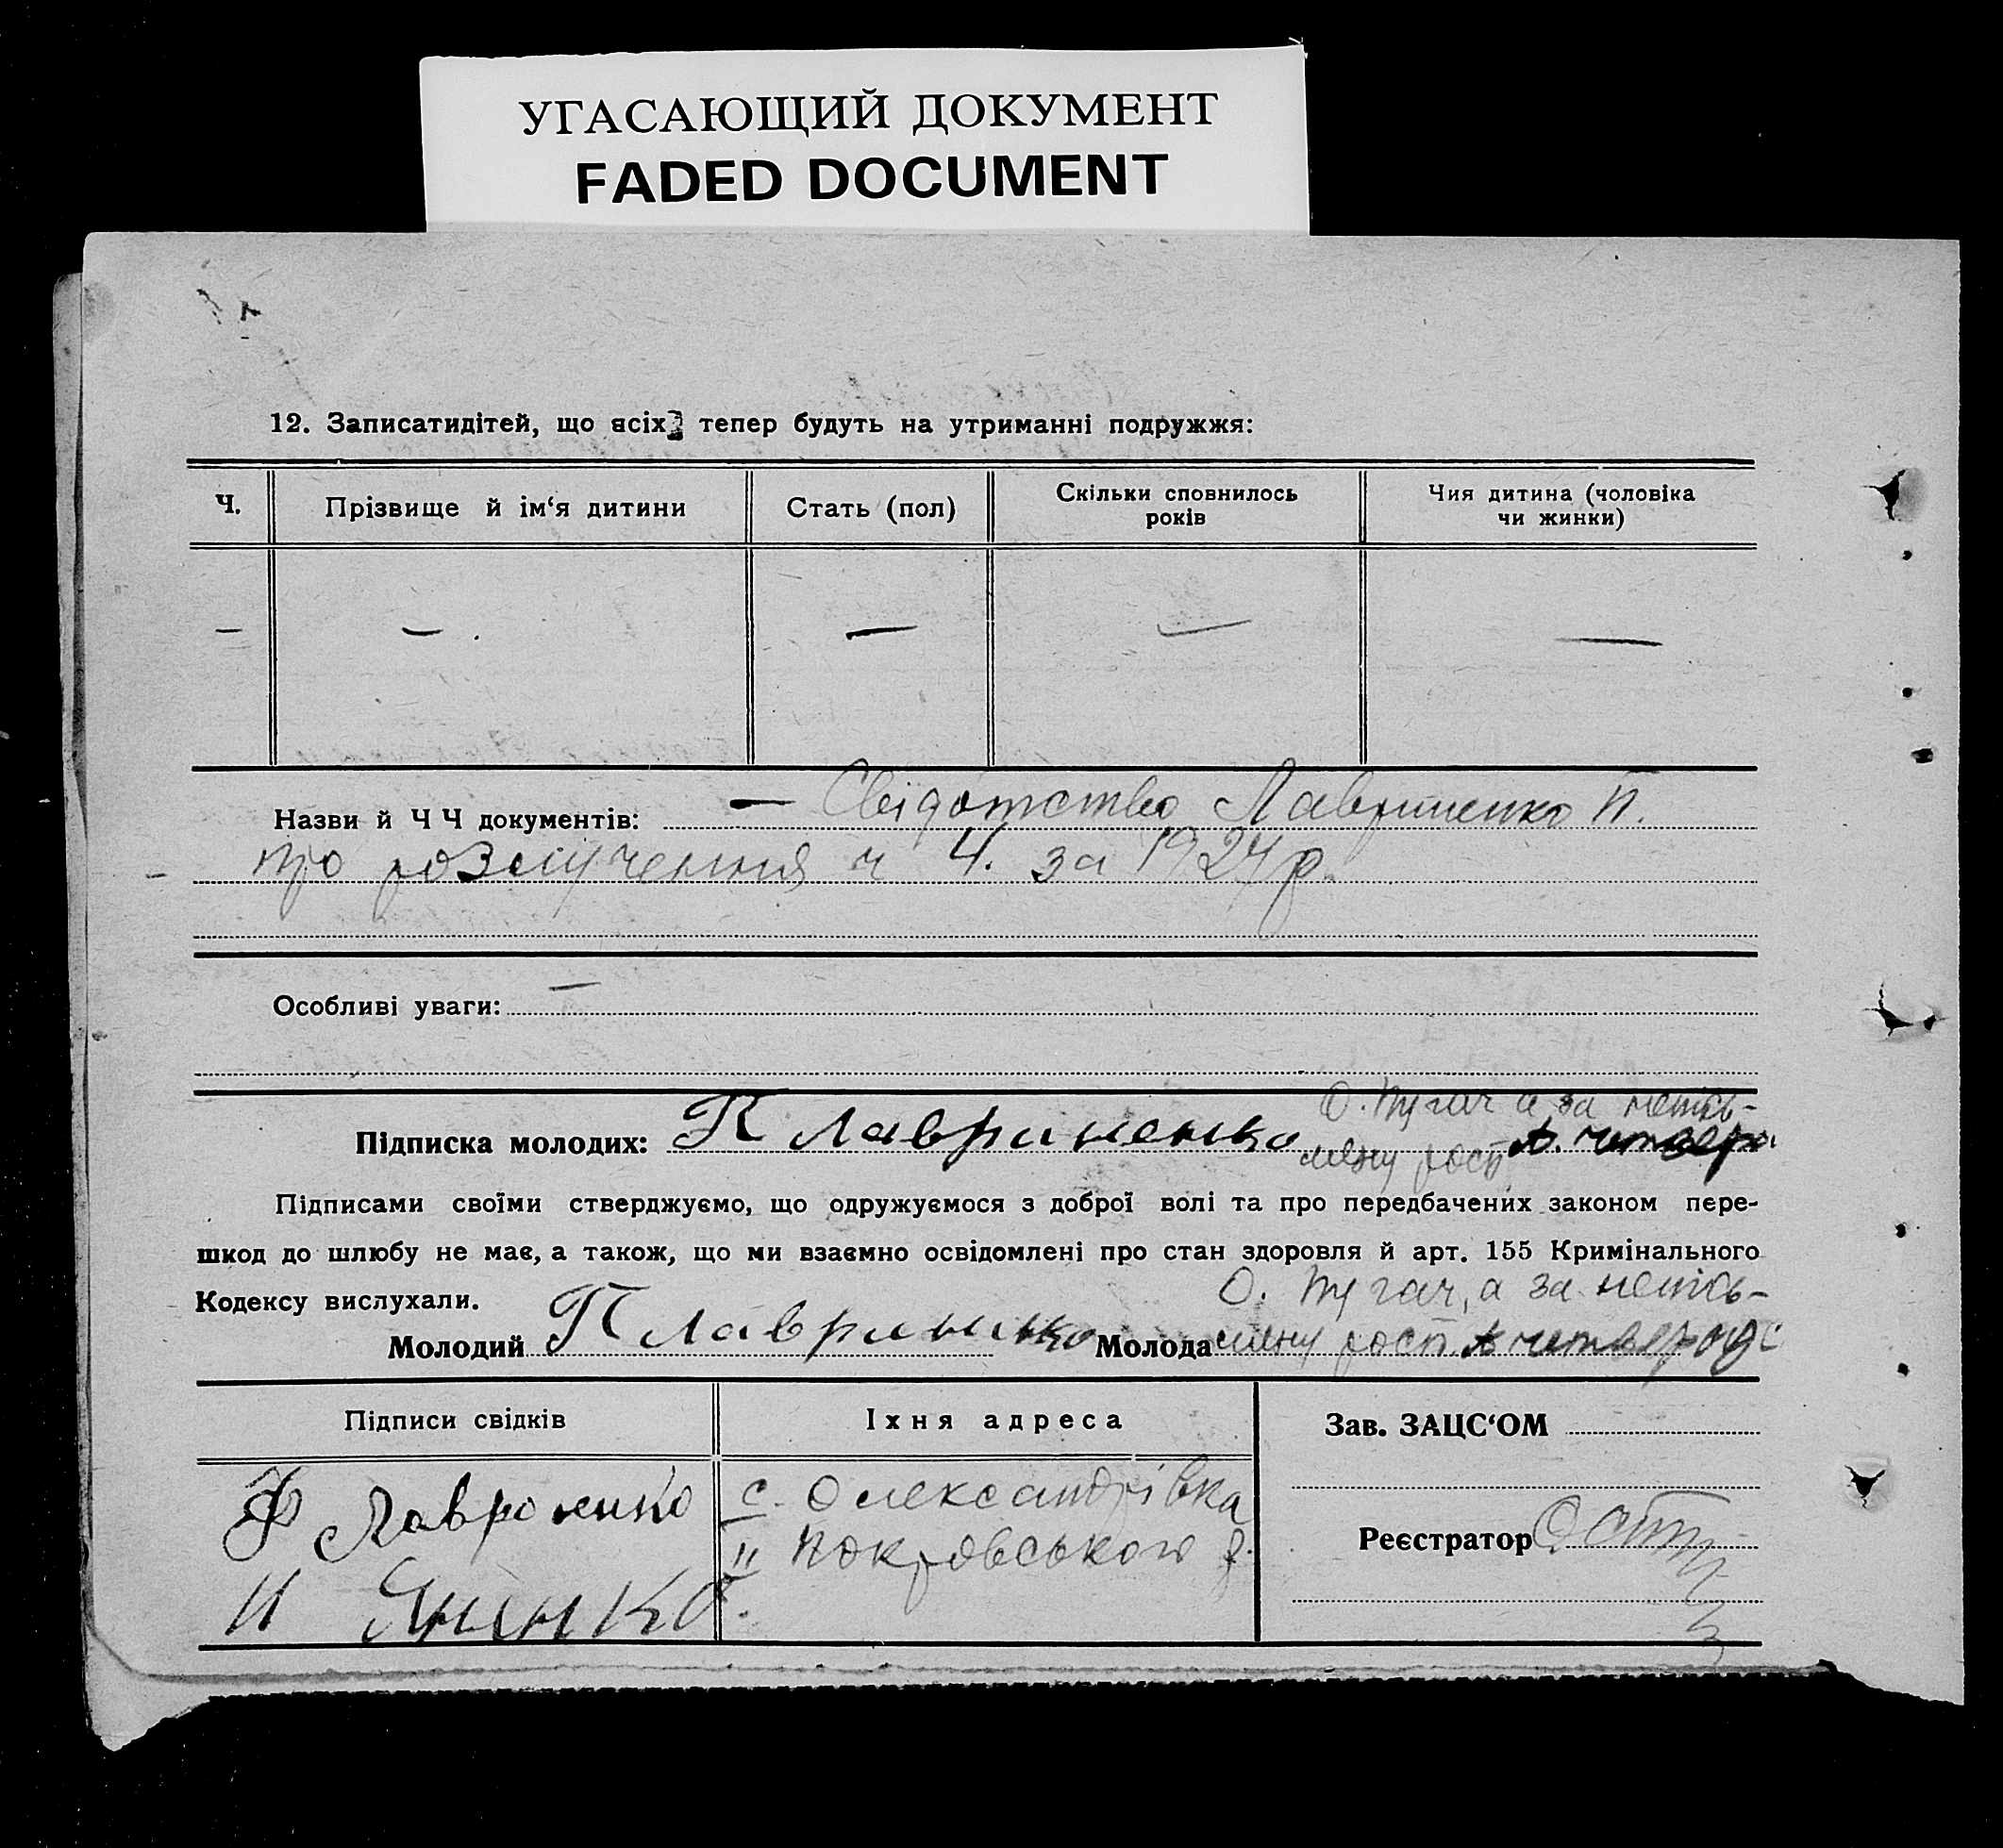 УГАСАЮЩИЙ ДОКУМЕНТ
FADED DOCUMENT
12. Записатидітей, що всіх тепер будуть на утриманні подружжя:
Ч. Прізвище й ім‘я дитини Стать (пол) Скільки сповнилось років Чия дитина (чоловіка чи жинки)
— — — — —
Назви й Ч Ч документів: — Свідотство Лавриненко П.
про розлучення ч 4. за 1924 р.
Особливі уваги: —
Підписка молодих: П Лавриненко О. Пугач а за непись-
мену росп А. четвери
Підписами своїми стверджуємо, що одружуємося з доброї волі та про передбачених законом пере-
шкод до шлюбу не має, а також, що ми взаємно освідомлені про стан здоровля й арт. 155 Кримінального
Кодексу вислухали.
О. Пугач, а за непись-
Молодий П Лавриненко Молода мену росп. А
Підписи свідків Їхня адреса Зав. ЗАЦС‘ОМ
Ф Лавроненко с. Олександрівка
" Покровського р.
Реєстратор
И Янинко.